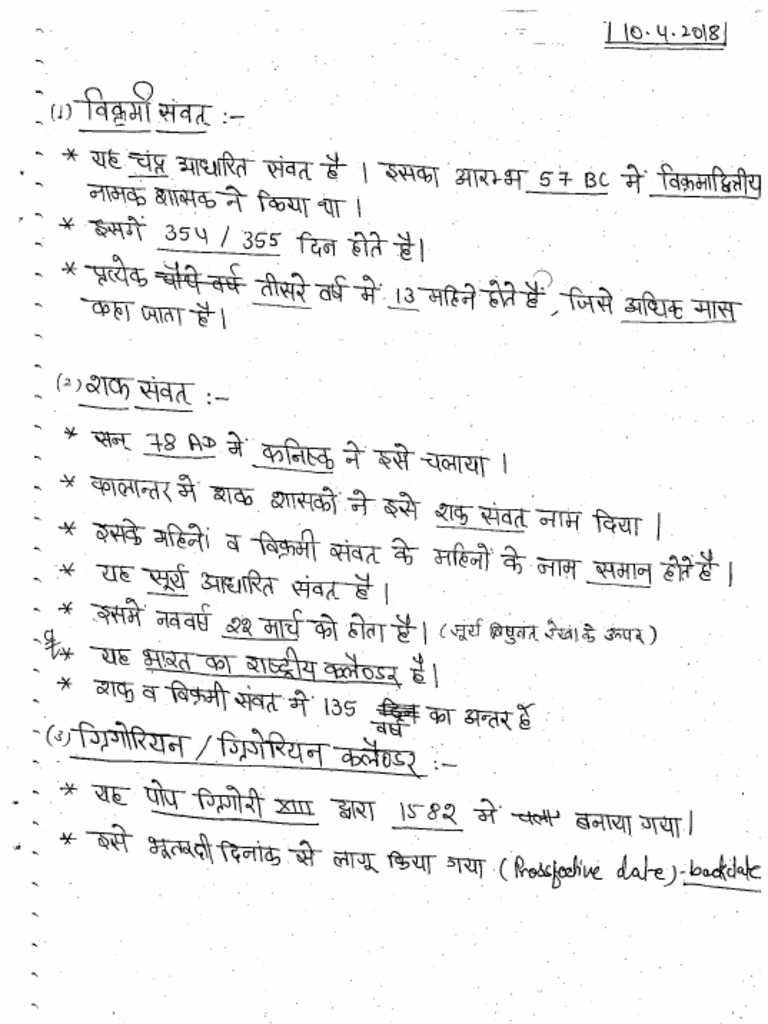 10.4.2018
(1) विक्रमी संवत् :-
* यह चंद्र आधारित संवत है । इसका आरम्भ 57 BC में विक्रमाद्वितीय
नामक शासक ने किया था ।
* इसमें 354 / 355 दिन होते है।
* प्रत्येक चौथे वर्ष तीसरे वर्ष में 13 महिने होते हैं , जिसे अधिक मास
कहा जाता है।
(2) शक संवत् :-
* सन् 78 AD में कनिष्क ने इसे चलाया ।
* कालान्तर में शक शासकों ने इसे शक संवत् नाम दिया ।
* इसके महिनों व विक्रमी संवत के महिनों के नाम समान होते है ।
* यह सूर्य आधारित संवत है ।
* इसमें नववर्ष २२ मार्च को होता है । (सूर्य विषुवत् रेखा के ऊपर)
* यह भारत का राष्ट्रीय कलैण्डर है।
* शक व विक्रमी संवत में 135 दिन वर्ष का अन्तर है
(3) ग्रिगोरियन / ग्रिगेरियन कलैण्डर :-
* यह पोप ग्रिगोरी XIII द्वारा 1582 में चला बनाया गया ।
* इसे भूतलक्षी दिनांक से लागू किया गया (Prosspective date)-backdate